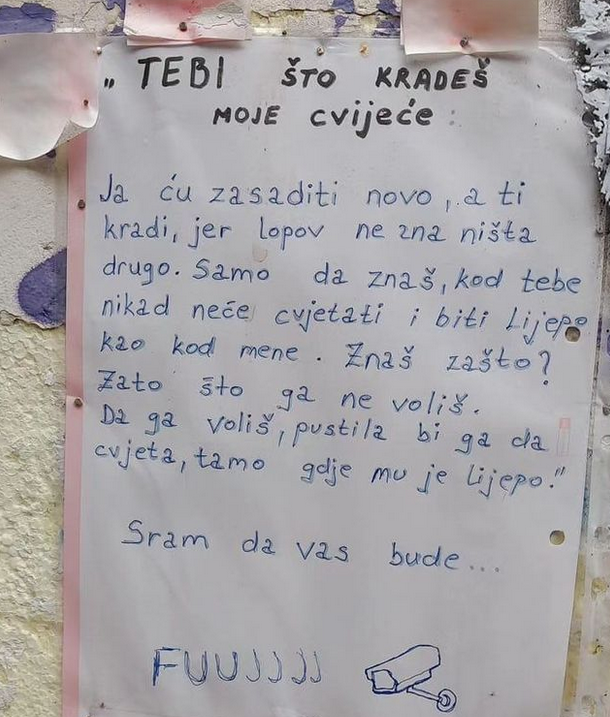 „TEBI ŠTO KRADEŠ
MOJE cvijeće:
Ja ću zasaditi novo, a ti
kradi, jer lopov ne zna ništa
drugo. Samo da znaš, kod tebe
nikad neće cvjetati i biti Lijepo
kao kod mene. Znaš zašto?
Zato što ga ne voliš.
Da ga voliš, pustila bi ga da
cvjeta, tamo gdje mu je lijepo."
Sram da vas bude...
FUUJJJJ